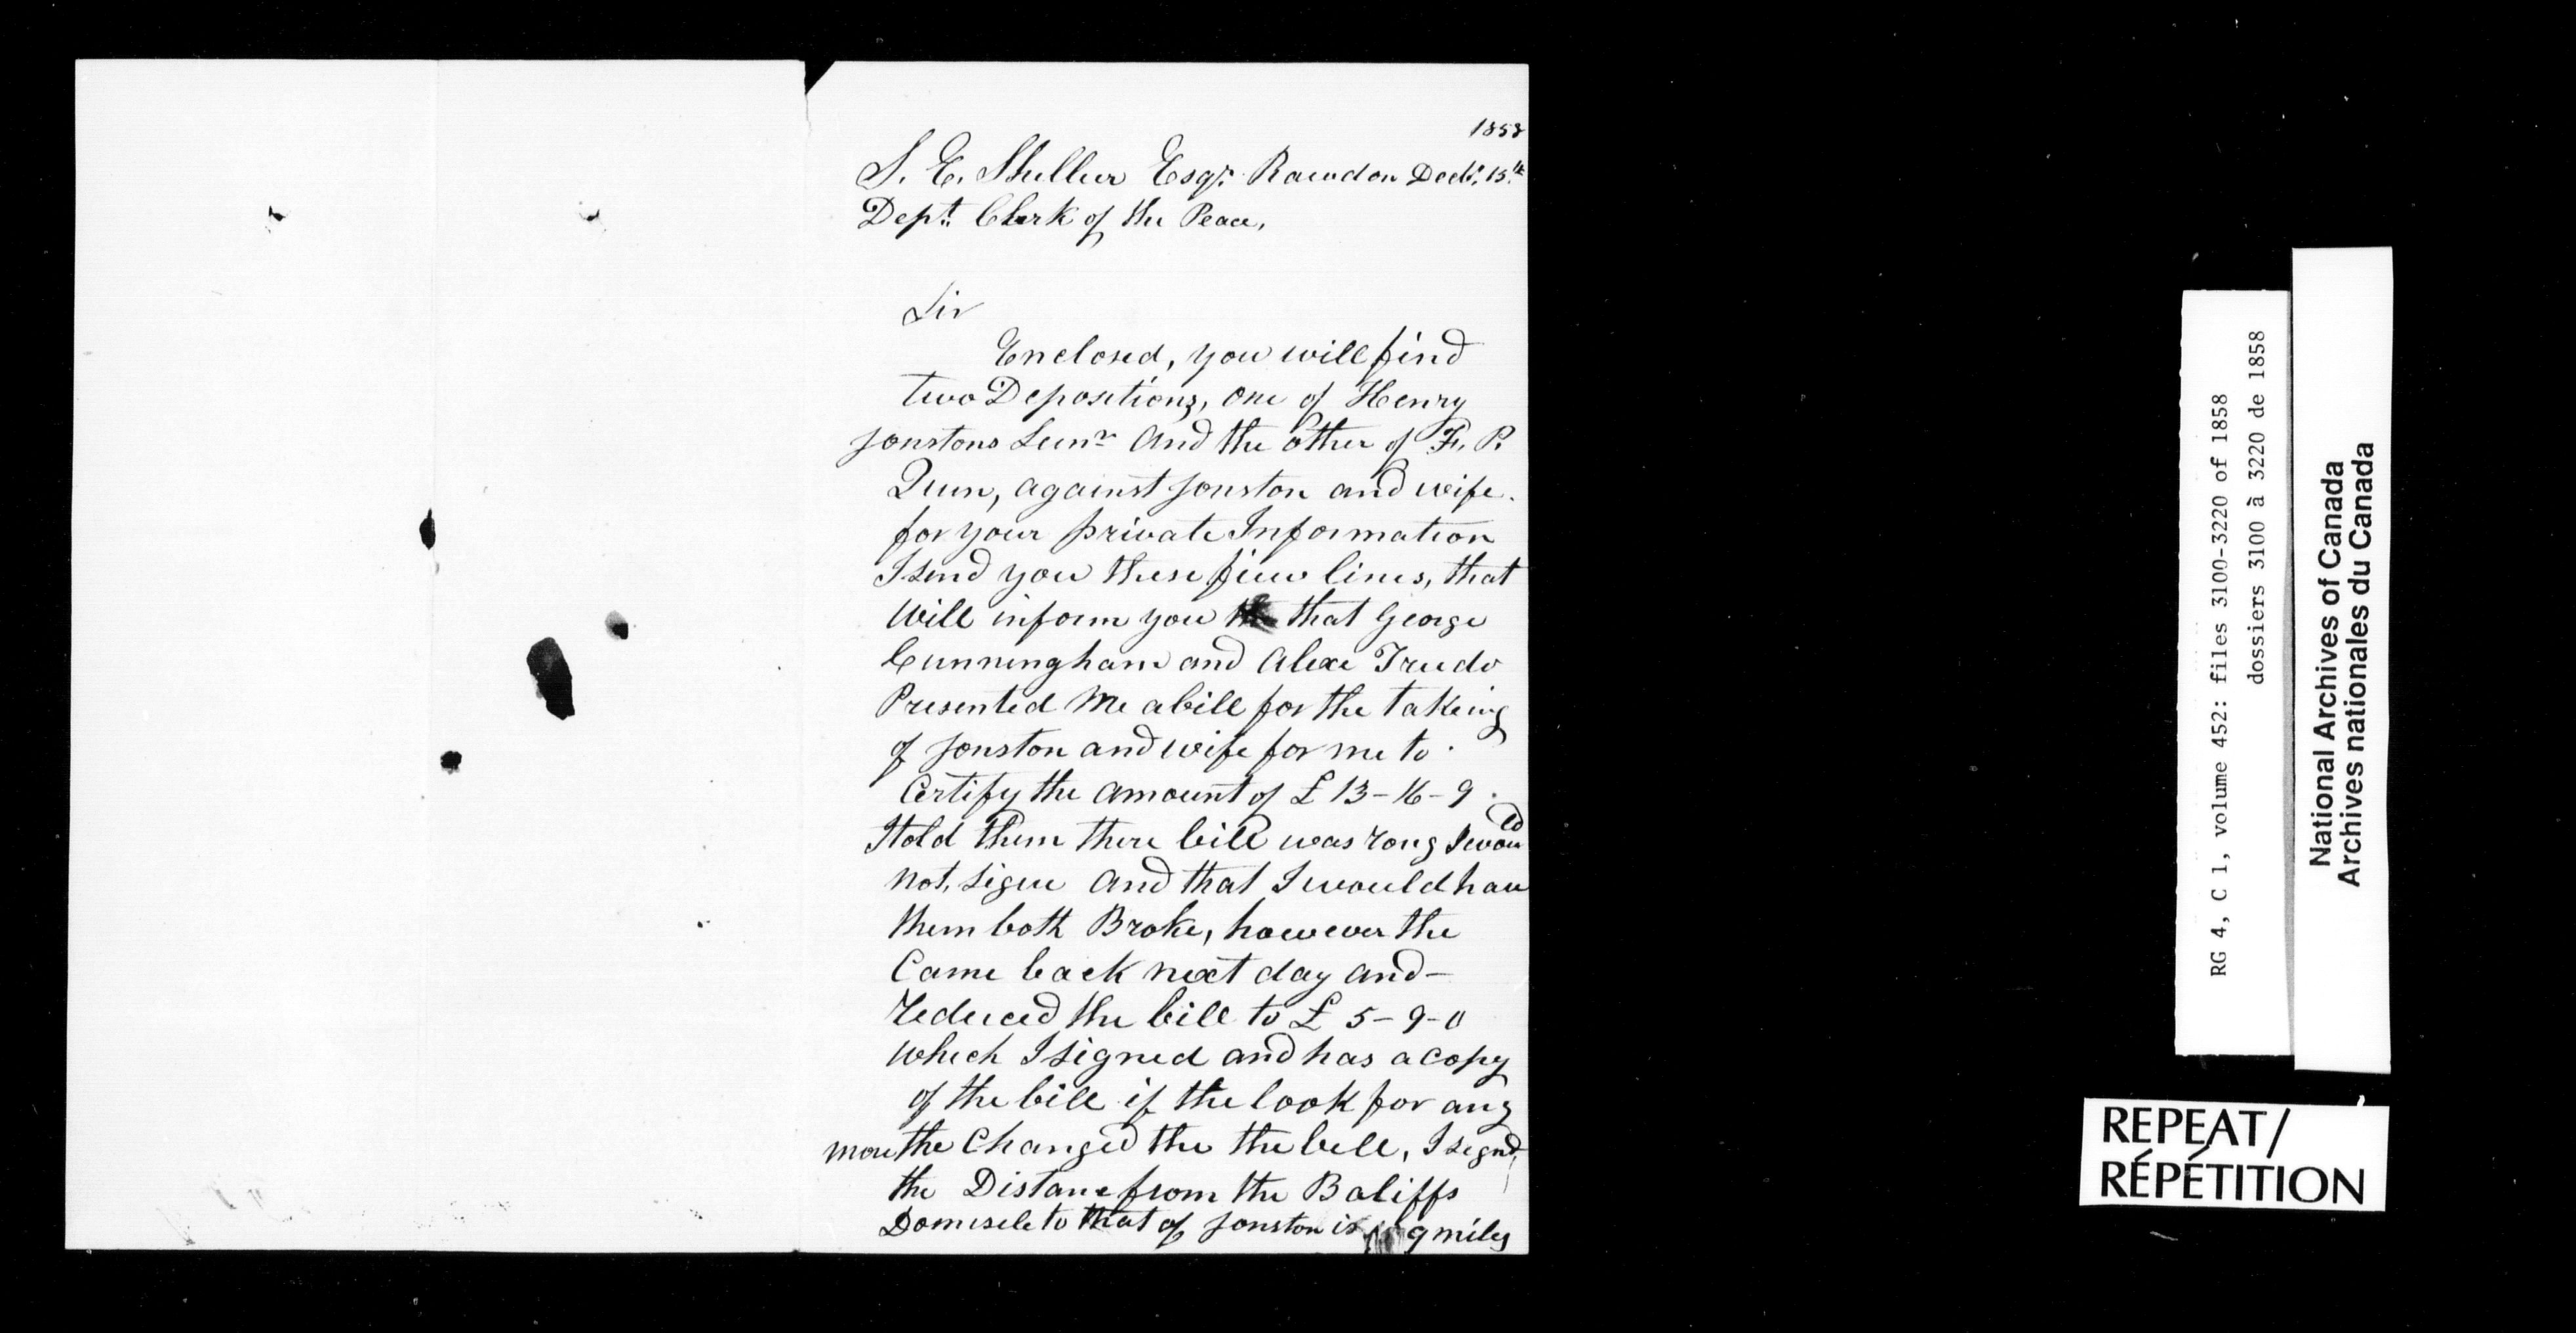 1858
S. E. Shuller Esqr. Rawdon Decbr. 15th
Dept. Clerk of the Peace,
Sir
Enclosed, you will find
two Depositions, one of Henry
Jonstons Seunr and the other of F. P.
Quin, against Jonston and wife.
for your private Information
I send you these fiew lines, that
will inform you that George
Cunningham and Alexe Trudo
Presented me a bill for the takeing
of Jonston and wife for me to
Certify the amount of £ 13-16-9.
I told them there bill was rong I would
not, signe and that I would have
them both Broke, however the
Came back next day and-
reduced the bill to £ 5-9-0
which I signed and has a copy
of the bill if the look for any
more the Changed the the bill, I signd,
the Distane from the Baliffs
Domisele to that of Jonston is 9 miles
RG 4, C 1, volume 452: files 3100-3220 of 1858
dossiers 3100 à 3220 de 1858
National Archives of Canada
Archives nationales du Canada
REPEAT/
RÉPÉTITION